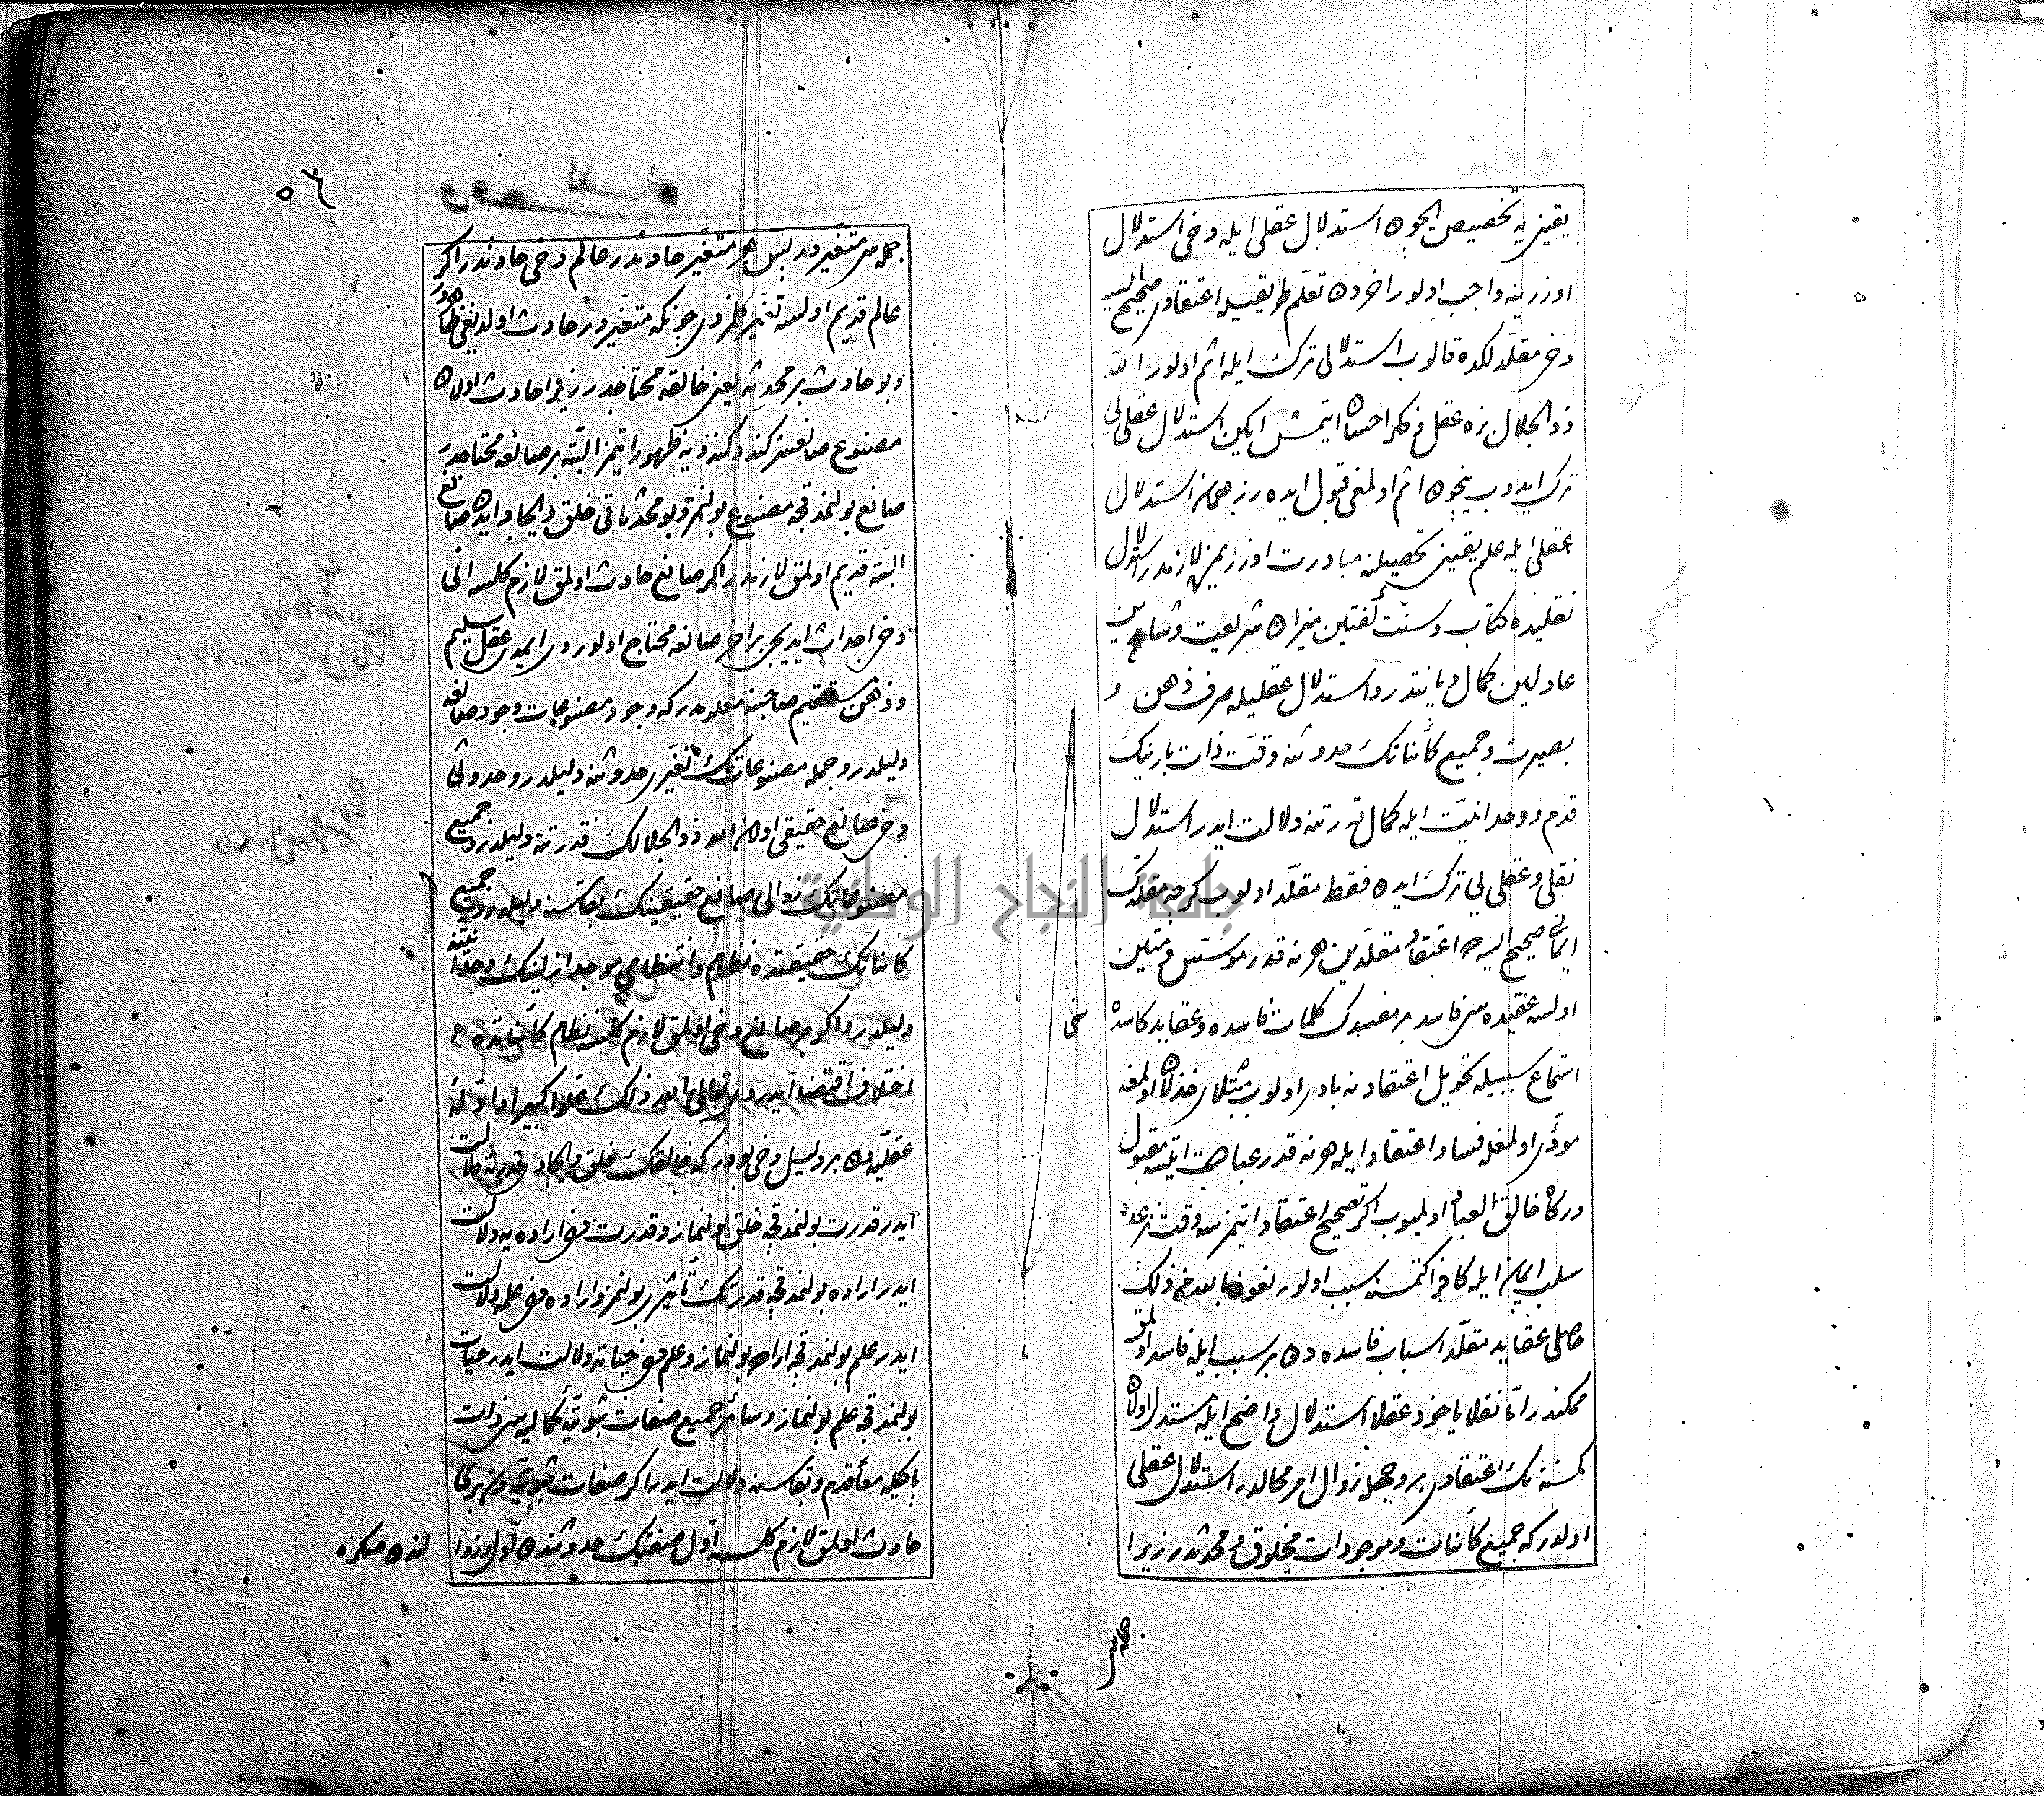 يقينى يه تخصيص ايچون استدلال عقلى ايله دخى استدلال
اوزرينه واجب اولور اخردن تعلّم طريقيله اعتقادى صحيح ايسه
دخى مقلّدلكده قالوب استدلالى ترك ايله اثم اولور الله
ذو الجلال بزه عقل و فكر احسان ايتمش ايكن استدلال عقلى لى
ترك ايدوب نيچون اثم اولمغى قبول ايده رز همان استدلال
عقلى ايله علم يقينى تحصيلنه مبادرت اوزريمزه لازمدر استدلال
نقليده كتاب و سنّت كفتين ميزان شريعت و شاهدين
عادلين كمال ديانتدر و استدلال عقليله صرف ذهن و
بصيرت و جميع كائناتك حدوثنه وقت ذات بارينك
قدم و وحدانيّت ايله كمال قدرتنه دلالت ايدر استدلال
نقلى و عقلى لى ترك ايدن فقط مقلّد اولوب كرچه مقلّدك
ايمانى صحيح ايسه اعتقاد مقلّدين هر نه قدر مؤسّس و متين
اولسه عقيده سى فاسد بر مفسدك كلمات فاسده و عقايد كاسده
استماع سببيله تحويل اعتقادنه بادى اولوب مبتلاى خذلان اولمغه
مؤدّى اولمغله فساد اعتقاد ايله هر نه قدر عبادت ايتسه مقبول
دركاه خالق العباد اولميوب اكر تصحيح اعتقاد ايتمزسه وقت نزعده
سلب ايمان ايله كافرا كتمسنه سبب اولور نعوذ بالله من ذلك
حاصلى عقايد مقلّد اسباب فاسده دن بر سبب ايله فاسد اولمق
ممكندر امّا نقلا ياخود عقلا استدلال واضح ايله مستدل اولان
كمسنه نك اعتقادى بر وجهله زوال امر محالدر استدلال عقلى
اولدر كه جميع كائنات و موجودات مخلوق و محدثدر زيرا
جمله سى
٥٣
جمله سى متغيّردر پس هر متغيّر حادثدر عالم دخى حادثدر اكر
عالم قديم اولسه تغيّر كلمزدى چونكه متغيّردر حادث اولديغى ظاهردر
و بو حادث بر محدثه يعنى خالقه محتاجدر زيرا حادث اولان
مصنوع صانعسز كندو كندويه ظهور ايتمز البتّه بر صانعه محتاجدر
صانع بولنمدقجه مصنوع بولنمز و بو محدثاتى خلق و ايجاد ايدن صانع
البتّه قديم اولمق لازمدر اكر صانع حادث اولمق لازم كلسه انى
دخى احداث ايديجى بر اخر صانعه محتاج اولوردى ايمدى عقل سليم
و ذهن مستقيم صاحبنه معلومدر كه وجود مصنوعات وجود صانعه
دليلدر و جمله مصنوعاتك تغيّرى حدوثنه دليلدر و حدوثى
دخى صانع حقيقى اولان الله ذو الجلالك قدرتنه دليلدر و جميع
مصنوعاتك زوالى صانع حقيقينك بقاسنه دليلدر و جميع
كائناتك حقيقتده نظام و انتظامى موجد ازلينك وحدانيّتنه
دليلدر و اكر بر صانع دخى اولمق لازم كلسه نظام كائناتده
اختلاف اقتضا ايدردى تعالى الله ذلك علوّا كبيرا و ادلّهٔ
عقليّه دن بر دليل دخى بودر كه خالقك خلق و ايجادى قدرتنه دلالت
ايدر قدرت بولنمدقجه خلق بولنماز و قدرت دخى اراده يه دلالت
ايدر اراده بولنمدقجه قدرتك تأثيرى بولنمز و اراده دخى علمه دلالت
ايدر علم بولنمدقجه اراده بولنماز و علم دخى حياته دلالت ايدر حيات
بولنمدقجه علم بولنماز و سائر جميع صفات ثبوتيّهٔ كماليه سى ذات
حادث اولمق لازم كلسه اول صفتك حدوثندن اول